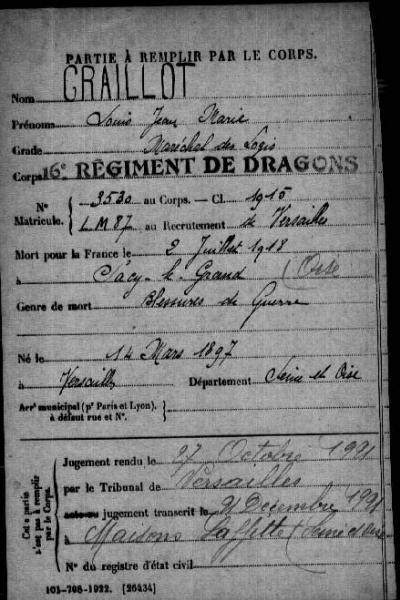 PARTIE À REMPLIR PAR LE CORPS.
Nom GRAILLOT
Prénoms Louis Jean Marie
Grade Maréchal des Logis
Corps 16e RÉGIMENT DE DRAGONS
N° 3530 au Corps. — Cl. 1915
Matricule. L M 87 au Recrutement de Versailles
Mort pour la France le 2 Juillet 1918
à Sacy-le-Grand (Oise
Genre de mort Blessures de Guerre
Né le 14 Mars 1897
à Versailles Département Seine et Oise
Arrt municipal (pr Paris et Lyon),
à défaut rue et N°.
Cette partie
n'est pas à remplir
par le Corps.
Jugement rendu le 27 Octobre 1921
par le Tribunal de Versailles
acte ou jugement transcrit le 21 Décembre 1921
à Maisons Laffitte (Seine et Oise
N° du registre d'état civil
101-708-1922. [26434]